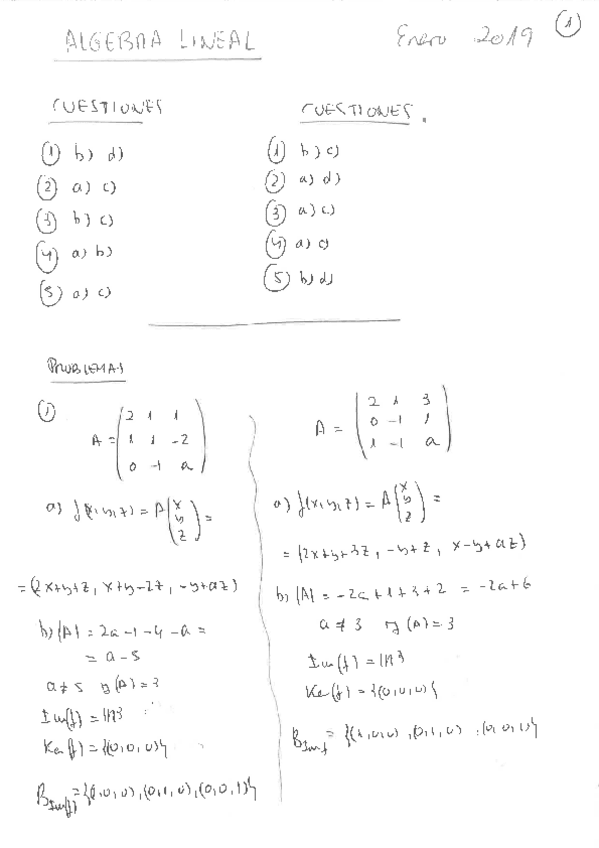 ALGEBRA LINEAL Enero 2019 ①
CUESTIONES
① b) d)
② a) c)
③ b) c)
④ a) b)
⑤ a) c)
CUESTIONES.
① b) c)
② a) d)
③ a) c)
④ a) c)
⑤ b) d)
PROBLEMAS
①
A = (2 1 1
1 1 -2
0 -1 a)
a) f(x,y,z) = A (x y z) =
= (2x+y+z, x+y-2z, -y+az)
b) |A| = 2a-1-4-a =
= a-5
a≠5 rg(A)=3
Im(f) = IR3
Ker(f) = {(0,0,0)}
B Im(f) = {(1,0,0), (0,1,0), (0,0,1)}
A = (2 1 3
0 -1 1
1 -1 a)
a) f(x,y,z) = A (x y z) =
= (2x+y+3z, -y+z, x-y+az)
b) |A| = -2a+1+3+2 = -2a+6
a≠3 rg(A)=3
Im(f) = IR3
Ker(f) = {(0,0,0)}
B Imf = {(1,0,0), (0,1,0), (0,0,1)}